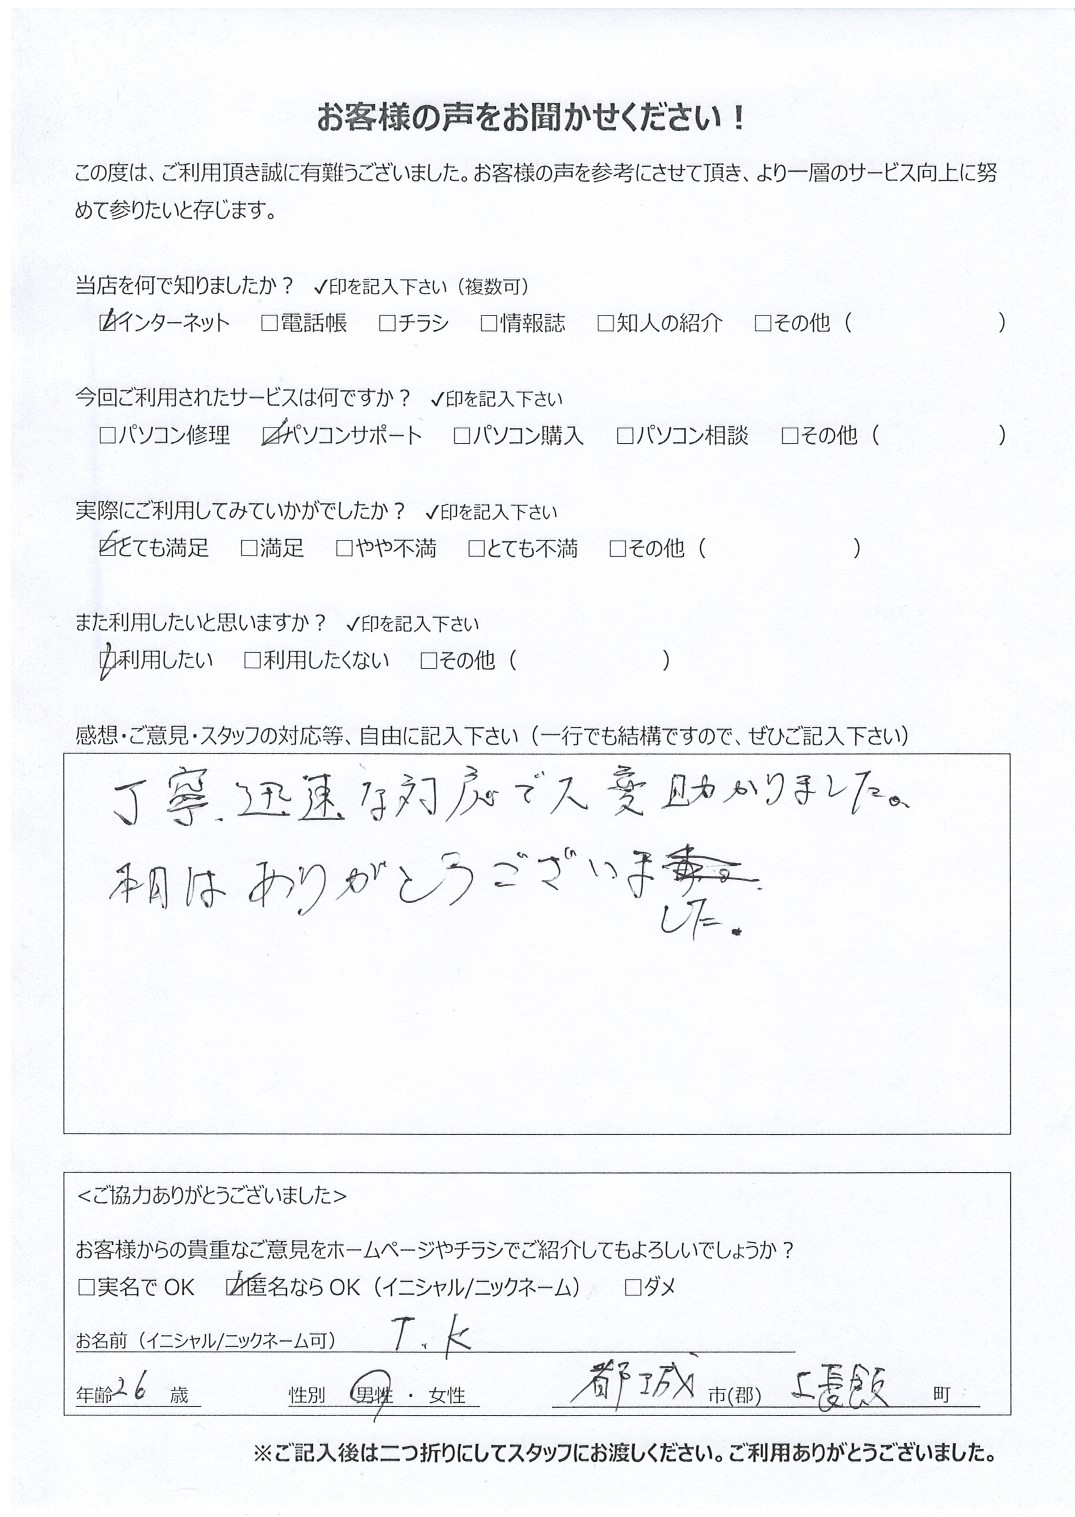 お客様の声をお聞かせください！
この度は、ご利用頂き誠に有難うございました。お客様の声を参考にさせて頂き、より一層のサービス向上に努
めて参りたいと存じます。
当店を何で知りましたか？ ✓印を記入下さい（複数可）
☑インターネット □電話帳 □チラシ □情報誌 □知人の紹介 □その他（ ）
今回ご利用されたサービスは何ですか？ ✓印を記入下さい
□パソコン修理 ☑パソコンサポート □パソコン購入 □パソコン相談 □その他（ ）
実際にご利用してみていかがでしたか？ ✓印を記入下さい
☑とても満足 □満足 □やや不満 □とても不満 □その他（ ）
また利用したいと思いますか？ ✓印を記入下さい
☑利用したい □利用したくない □その他（ ）
感想・ご意見・スタッフの対応等、自由に記入下さい（一行でも結構ですので、ぜひご記入下さい）
丁寧、迅速な対応で大変助かりました。
本日はありがとうございま
した。
＜ご協力ありがとうございました＞
お客様からの貴重なご意見をホームページやチラシでご紹介してもよろしいでしょうか？
□実名でOK ☑匿名ならOK（イニシャル/ニックネーム） □ダメ
お名前（イニシャル/ニックネーム可） T.K
年齢 26 歳 性別 男性 ・ 女性 都城 市(郡) 上長飯 町
※ご記入後は二つ折りにしてスタッフにお渡しください。ご利用ありがとうございました。